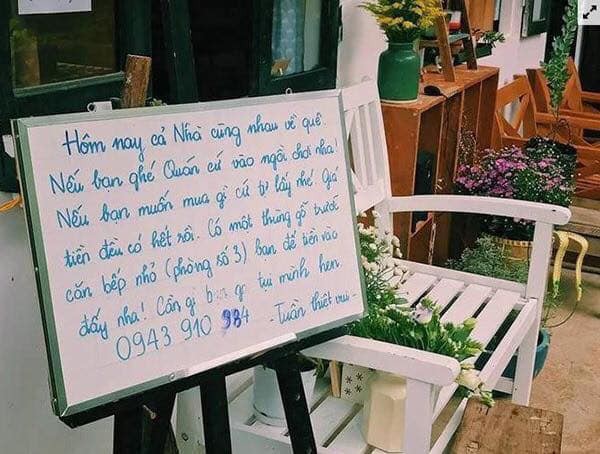 Hôm nay cả Nhà cùng nhau về quê.
Nếu bạn ghé Quán cứ vào ngồi chơi nha!
Nếu bạn muốn mua gì cứ tự lấy nhé Giá
tiền đều có hết rồi. Có một thùng gỗ trước
căn bếp nhỏ (phòng số 3) bạn để tiền vào
đấy nha! Cần gì tụi mình hen
0943 910 984 - Tuấn thiệt vui -